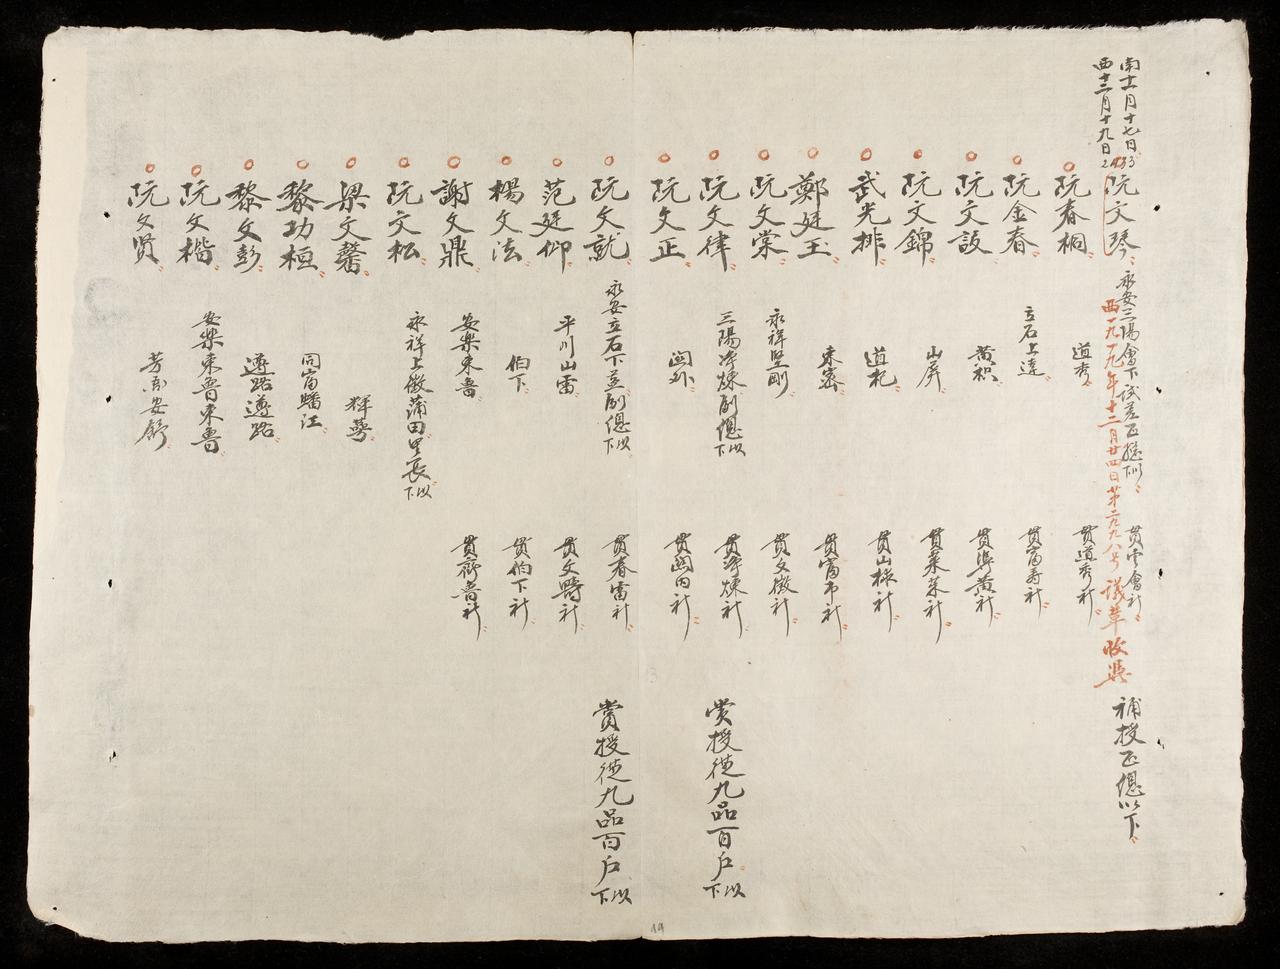 南十一月十七日
西十二月十九日
阮文琴 永安三陽會下試差正總下以 貫雲會社 補授正總以下
西一九一九年十二月廿四日第二九九八号議草收照
阮春桐 道秀 貫道秀社
阮金春 立石上達 貫富壽社
阮文設 黄積 貫埠黄社
阮文錦 山屏 貫菜菜社
武光排 道札 貫山椂社
鄭廷玉 東密 貫富市社
阮文棠 永祥堅剛 貫文徵社
阮文律 三陽淨煉副總下以 貫淨煉社 賞授從九品百戶下以
阮文正 関外 貫関内社
阮文就 永安立石下並副總下以 貫春雷社 賞授從九品百戶下以
范廷仰 平川山雷 貫文疇社
楊文法 伯下 貫伯下社
謝文鼎 安樂東魯 貫齊魯社
阮文松 永祥上徵蒲田里長下以
梁文馨 輝萼
黎功桓 同富蟠江
黎文彭 遵路遵路
阮文楷 安樂東魯東魯
阮文賢 安舒